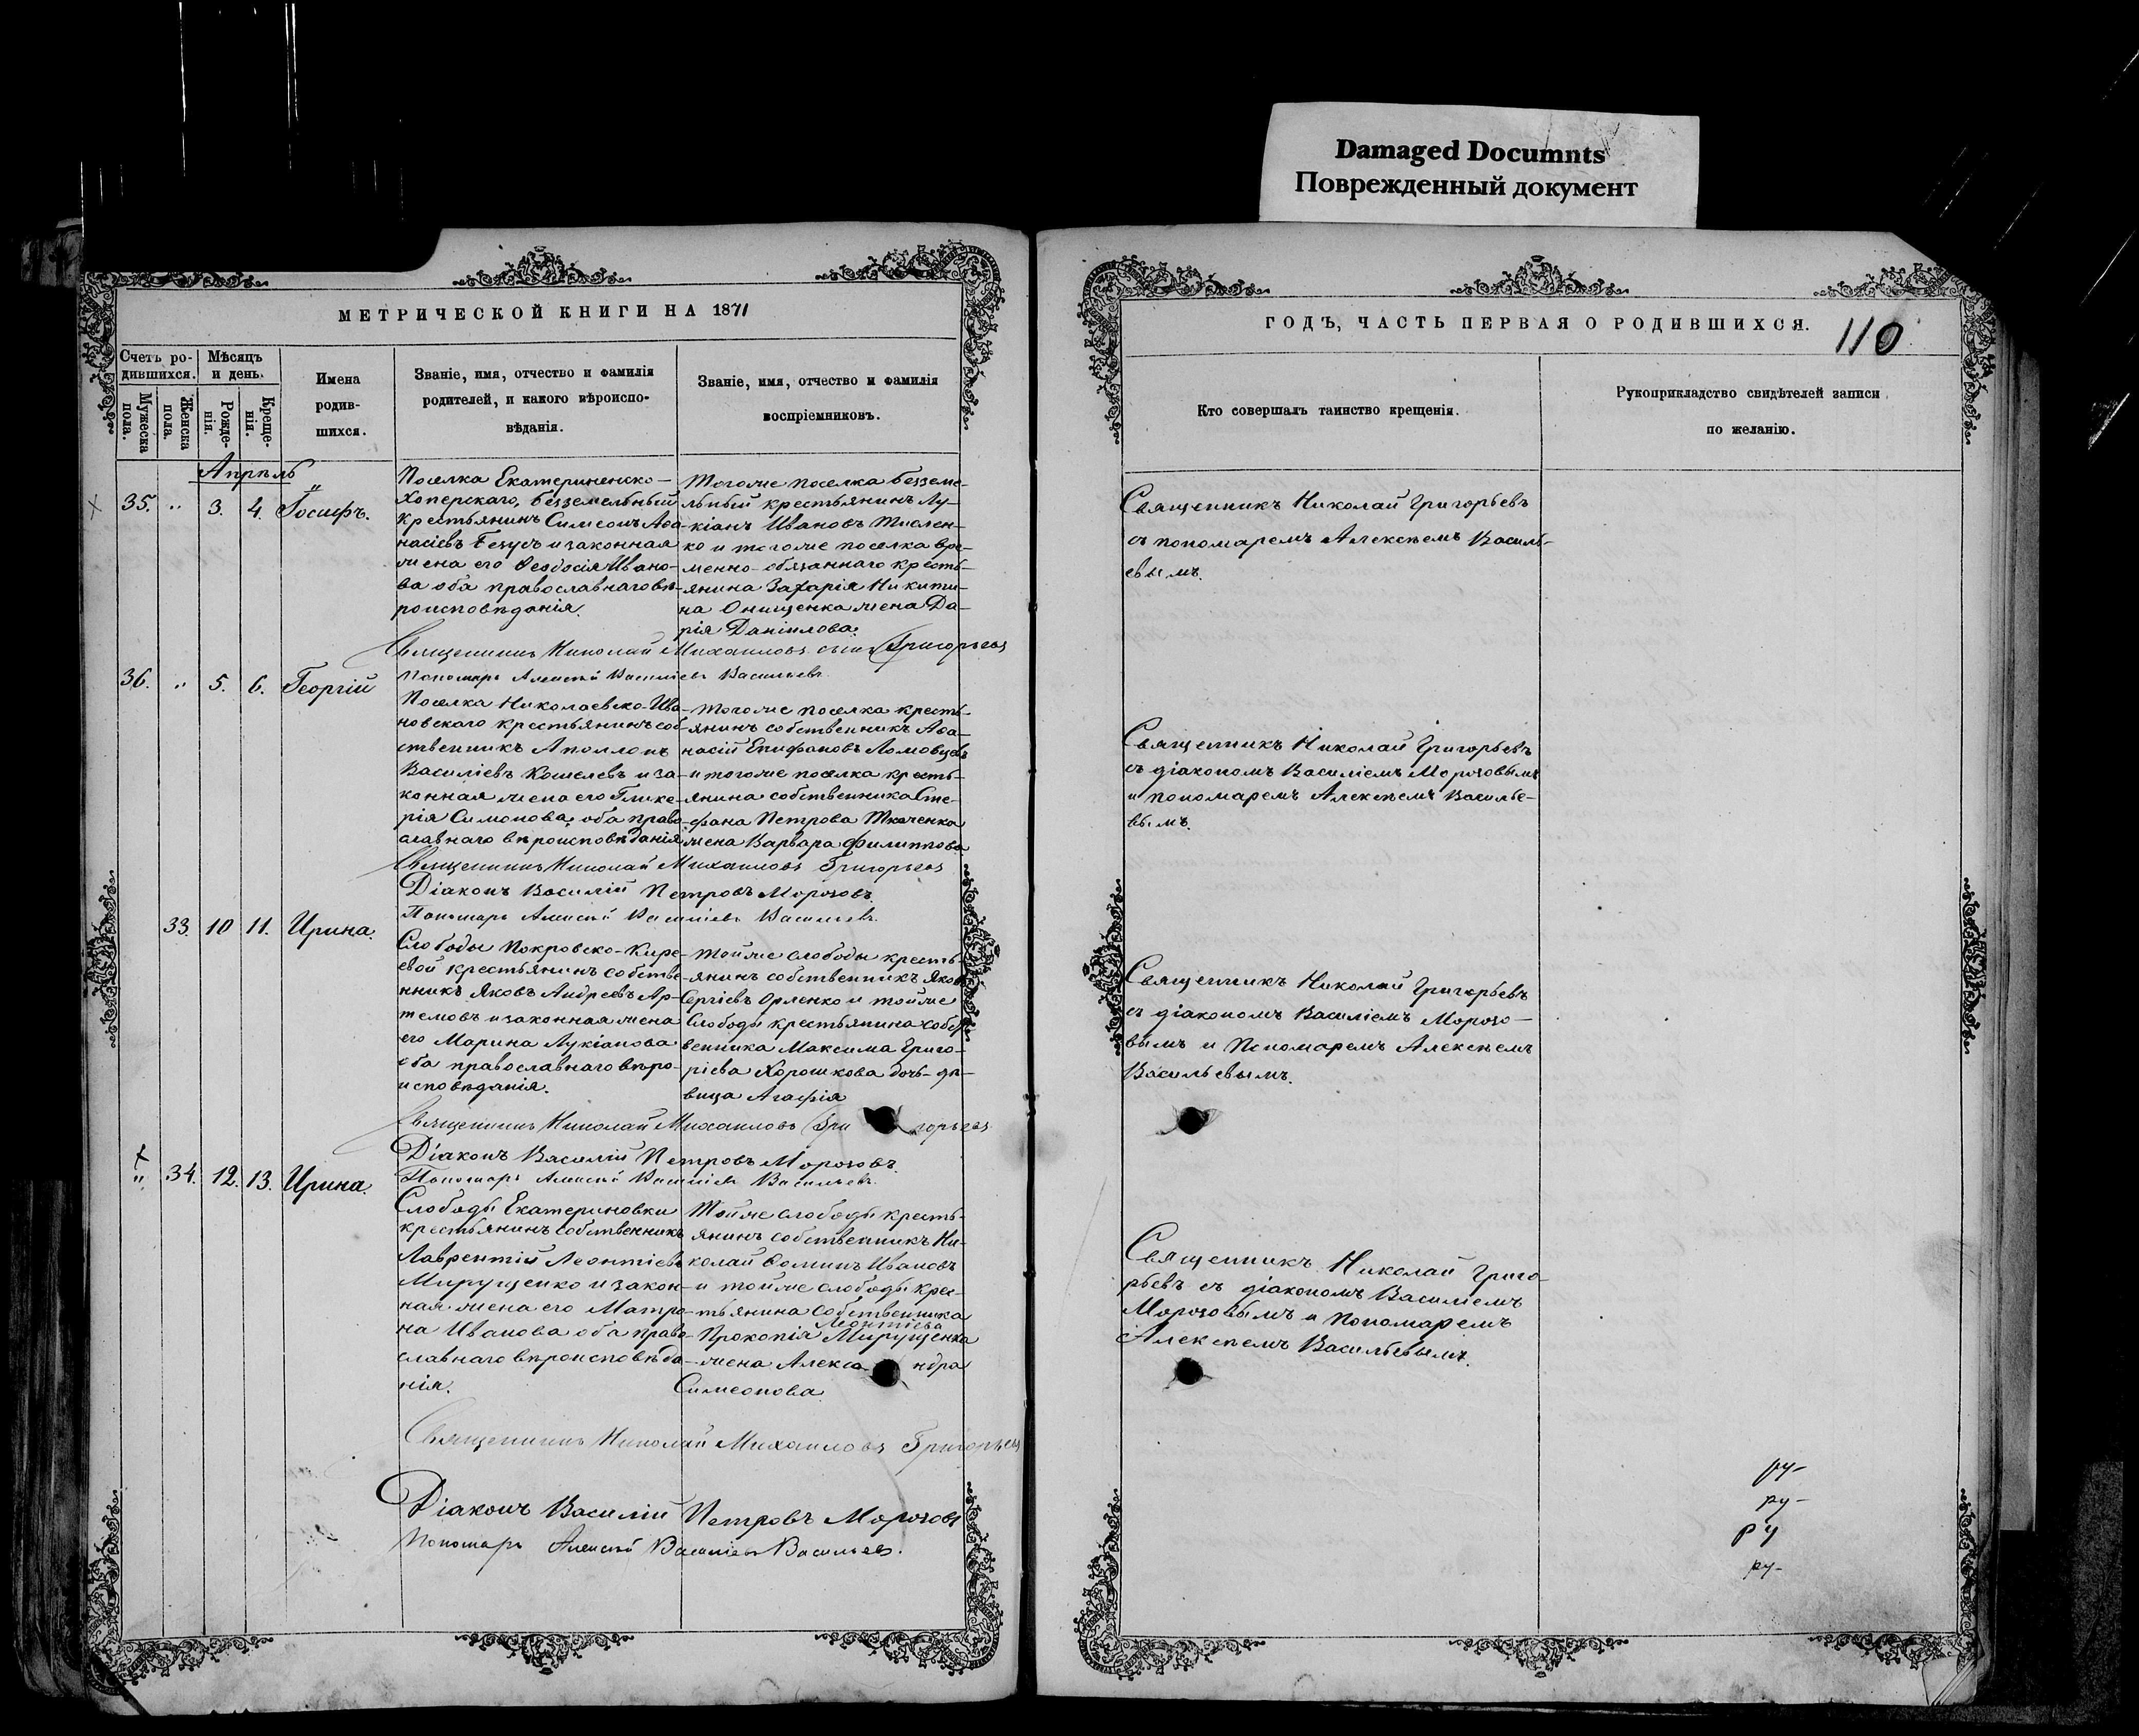 Damaged Documnts
Поврежденный документ
МЕТРИЧЕСКОЙ КНИГИ НА 1871
Счетъ ро-
дившихся.
Мѣсяцъ
и день.
Мужеска
пола.
Женска
пола.
Рожде-
нія.
Креще-
нія.
Имена
родив-
шихся.
Званіе, имя, отчество и фамилія
родителей, и какого вѣроиспо-
вѣданія.
Званіе, имя, отчество и фамилія
воспріемниковъ.
Апрѣль
35. " 3. 4. Іосифъ.
Поселка Екатериненско-
Хоперскаго, безземельный
крестьянинъ Симеонъ Аѳа-
насіевъ и законная
жена его Ѳеодосія Ивано-
ва оба православнаго вѣ-
роисповѣданія.
Тогоже поселка безземе-
льный крестьянинъ Лу-
кіанъ Ивановъ
ко и тогоже поселка вре-
менно-обязаннаго кресть-
янина Захарія Никити-
на Онищенка жена Да-
рія Даніилова.
Священникъ Николай Михаиловъ сынъ Григорьевъ
Пономарь Алексѣй Василіевъ Васильевъ
36. " 5. 6. Георгій
Поселка Николаевско-Ива-
новскаго крестьянинъ соб-
ственникъ Аполлонъ
Василіевъ Кошелевъ и за-
конная жена его Глике-
рія Симонова, оба право-
славнаго вѣроисповѣданія
Тогоже поселка кресть-
янинъ собственникъ Аѳа-
насій Епифановъ Ломовцевъ
и тогоже поселка кресть-
янина собственника Сте-
фана Петрова Ткаченка
жена Варвара Филиппова
Священникъ Николай Михаиловъ Григорьевъ
Діаконъ Василій Петровъ Морозовъ.
Пономарь Алексѣй Василіевъ Васильевъ.
33. 10 11. Ирина.
Слободы Покровско-Кире-
евой крестьянинъ собстве-
нникъ Яковъ Андреевъ Ар-
темовъ и законная жена
его Марина Лукіанова
оба православнаго вѣро-
исповѣданія.
Тойже слободы кресть-
янинъ собственникъ Яковъ
Сергіевъ Орленко и тойже
Слободы крестьянина собст
венника Максима Григо-
ріева Хорошкова дочь-дѣ-
вица Агафія
Священникъ Николай Михаиловъ Григорьевъ
Діаконъ Василій Петровъ Морозовъ.
Пономарь Алексѣй Василіевъ Васильевъ.
" 34. 12. 13. Ирина.
Слободы Екатериновки
крестьянинъ собственникъ
Лаврентій Леонтіевъ
Мирущенко и закон-
ная жена его Матро-
на Иванова оба право-
славнаго вѣроисповѣда-
нія.
Тойже слободы кресть-
янинъ собственникъ Ни-
колай Ѳоминъ Ивановъ
и тойже слободы крес-
тьянина собственника
Леонтіева
Прокопія Мирущенка
жена Александра
Симеонова
Священникъ Николай Михаиловъ Григорьевъ
Діаконъ Василій Петровъ Морозовъ
Пономарь Алексѣй Василіевъ Васильевъ.
ГОДЪ, ЧАСТЬ ПЕРВАЯ О РОДИВШИХСЯ.
110
Кто совершалъ таинство крещенія.
Рукоприкладство свидѣтелей записи
по желанію.
Священникъ Николай Григорьевъ
съ пономаремъ Алексѣемъ Василь-
евымъ.
Священникъ Николай Григорьевъ
съ діакономъ Василіемъ Морозовымъ
и пономаремъ Алексѣемъ Василье-
вымъ.
Священникъ Николай Григорьевъ
съ діакономъ Василіемъ Морозо-
вымъ и Пономаремъ Алексѣемъ
Васильевымъ.
Священникъ Николай Григо-
рьевъ съ діакономъ Василіемъ
Морозовымъ и Пономаремъ
Алексѣемъ Васильевымъ.
ру-
ру-
ру
ру-